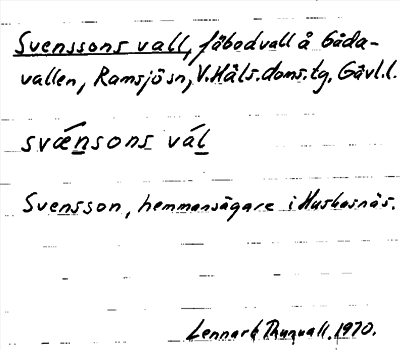 Svenssons vall, fäbodvall å Gåda-
vallen, Ramsjö sn, V. Häls. doms. tg. Gävl. l.
svǽnsons vál
Svensson, hemmansägare i Huskasnäs.
Lennart Thunvall. 1970.